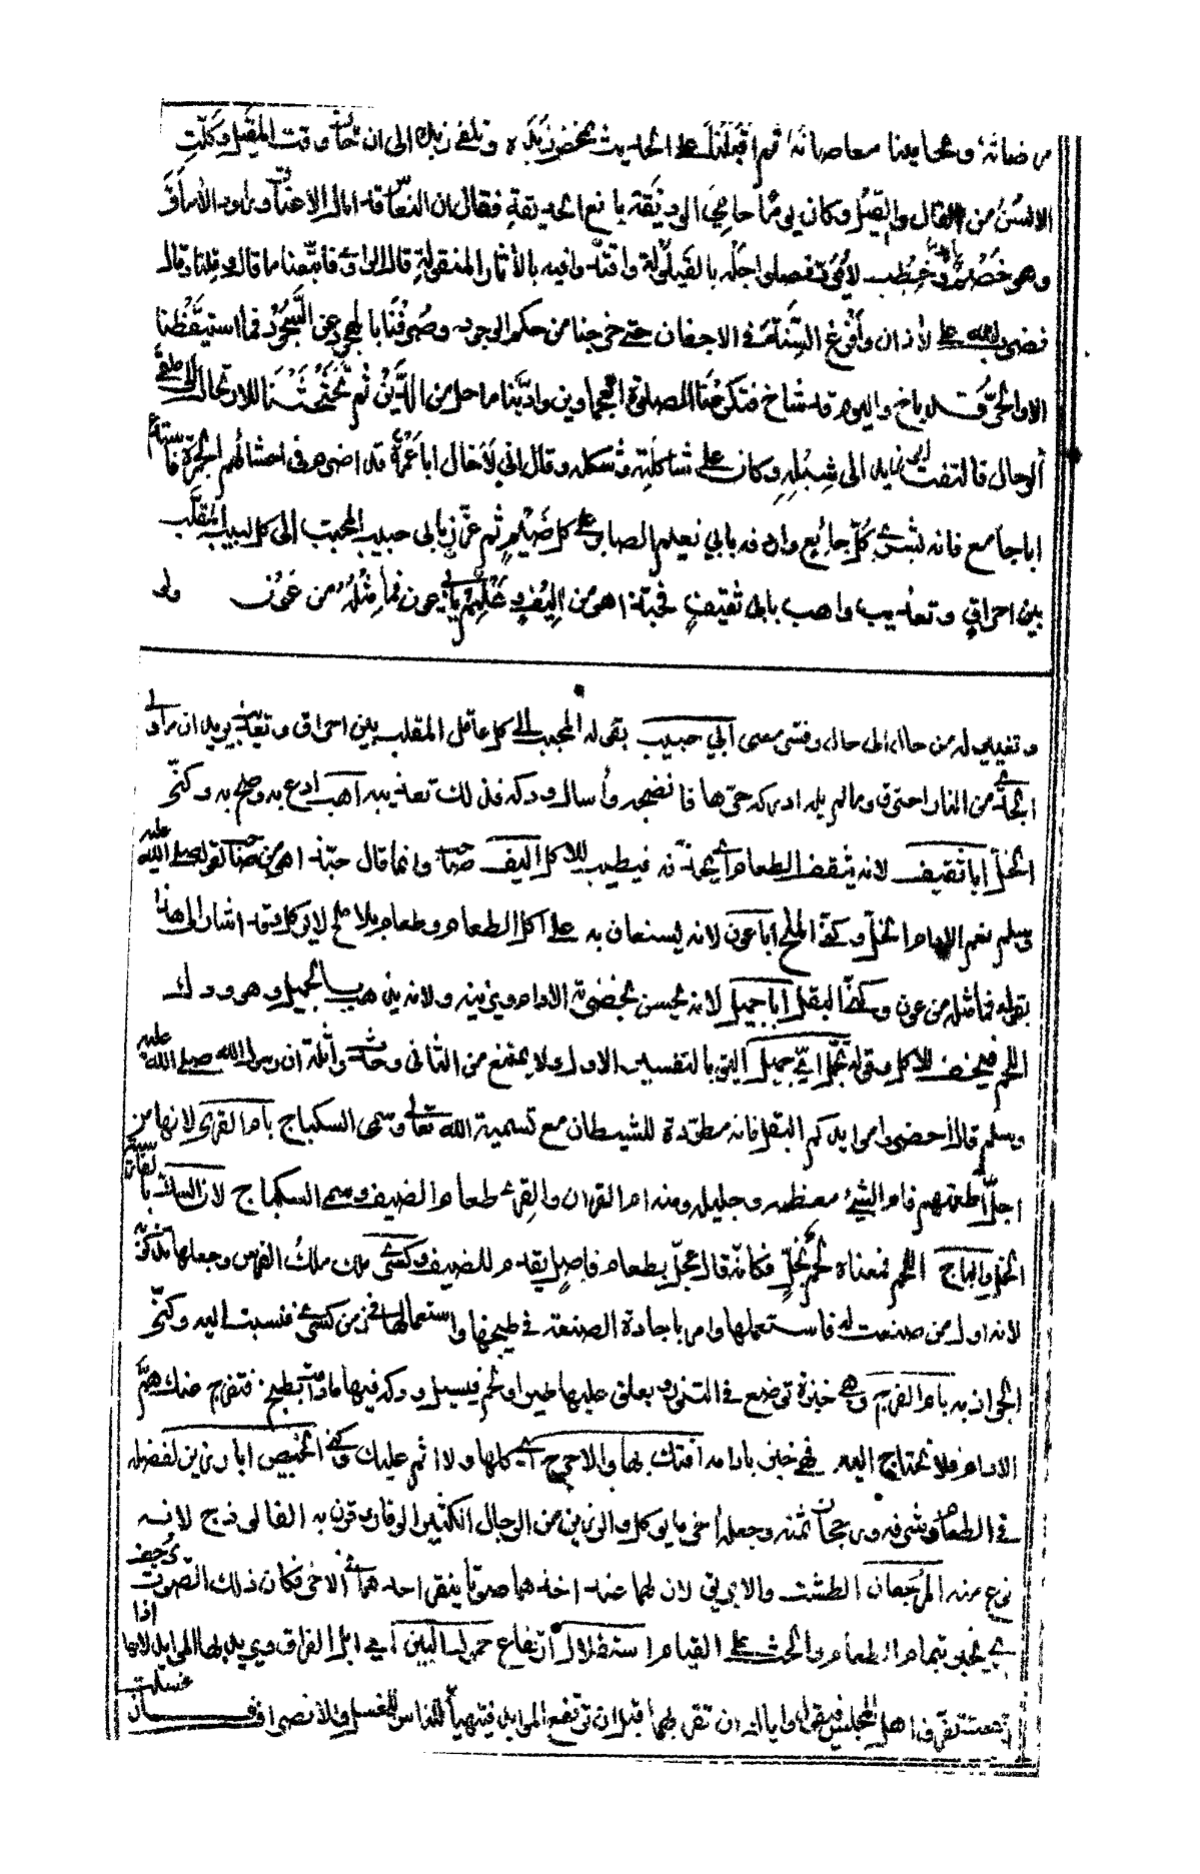 من ضمانة ومحامينا معاصاته ثم اقبلنا على الحديث نمخض زبده ونلغي زبده الى ان حان وقت المقيل وكلت
الالسن من القال والقيل وكان يوما حامي الوديقة يانع الحديقة فقال ان النعاس قد امال الاعناق وراود الآماق
وهو خصم الد وخطب لا يرد فصلوا حبله بالقيلولة واقتدوا فيه بالآثار المنقولة قال الراوي فاتبعنا ما قال وقلنا وقال
فضرب الله على الآذان وافرغ السنة في الاجفان حتى خرجنا من حكم الوجود وصرفنا بالهجود عن السجود فما استيقظنا
الا والحر قد باخ واليوم قد شاخ فتكرعنا لصلوة العجماوين وادينا ما حل من الدين ثم تحثحثنا للارتحال الى ملقى
الرحال فالتفت ابو زيد الى شبله وكان على شاكلته وشكله وقال اني لاخال ابا عمرة قد اضرم في احشائهم الجمرة فاستدع
ابا جامع فانه بشرى كل جائع واردفه بابي نعيم الصابر على كل ضيم ثم عزز بابي حبيب المحبب الى كل لبيب المقلب
بين احراق وتعذيب واهب بابي ثقيف فحبذا هو من اليف وهلم بابي عون فما مثله من عون ولو
وتغييره من حال الى حال وفسر معنى ابي حبيب بقوله المحبب الى كل عاقل المقلب بين احراق وتعذيب يريد ان
الجدي من النار احترق وما لم يله ادركه حرها فانضجه وأسال ودكه فذلك تعذيبه اهب ادع به وصح به وكنى
الخل ابا ثقيف لانه يثقف الطعام اي يحذقه فيطيب للاكل اليف صاحب وانما قال حبذا هو من صاحب لقوله صلى الله عليه
وسلم نعم الادام الخل وكنى الملح ابا عون لانه يستعان به على اكل الطعام وطعام بلا ملح لا يوكل وقد اشار الى هذا
بقوله فما مثله من عون وكنى البقل ابا جميل لانه يحسن بخضرته الادام ويزينه ولانه يذهب بالجميل وهو ودك
اللحم فيخف للاكل وقوله تجمل اي جمل اليق بالتفسير الاول ولا يمتنع من الثاني وحدث واثلة ان رسول الله صلى الله عليه
وسلم قال احضروا موايدكم البقل فانه مطردة للشيطان مع تسمية الله تعالى وسمى السكباج بام القرى لانها من
اجل اطعمتهم فام الشيء معظمه وجليله ومنه ام القران والقرى طعام الضيف وسمي السكباج لان السك بالفارسية
الخل والباج اللحم فمعناه لحم بخل فكانه قال عجل بطعام فاضل يقدم للضيف وكسرى ملك ملوك الفرس وجعلها تذكره
لانه اول من صنعت له فاستعملها وامر باجادة الصنعة في طبخها واستعمالها في زمن كسرى فنسبت اليه وكنى
الجواذبه بام الفرج وهي خبزة توضع في التنور ويعلق عليها طير او لحم فيسيل ودكه فيها ما دام يطبخ فتفرج عنك هم
الادام فلا تحتاج اليه فهي خبز بادامه افتك بها ولا حرج اي كلها ولا اثم عليك وكنى الخبيص ابا رزين لفضله
في الطعام وشرفه ورجحان ثمنه وجعله اخر ما يوكل والرزين من الرجال الكثير الوقار قرن به الفالوذج لانه
نوع منه المرجفان الطست والابريق لان لهما عند اخذهما صوتا ينقر احدهما الآخر فكان ذلك الصوت يرجف
اي يخبر بتمام الطعام والحث على القيام استقلال ارتفاع حمول البين اي ابل الفراق ويريد بها الموايد لانها اذا
رفعت تفرق اهل المجلس فيقول واياك ان تقربهما قبل ان ترفع الموايد فيتهيأ الناس للغسل والانصراف فان غسلت